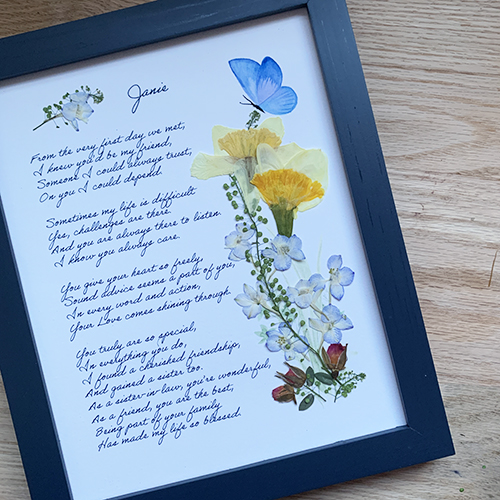 Janie
From the very first day we met,
I knew you'd be my friend,
Someone I could always trust,
On you I could depend.
Sometimes my life is difficult
Yes, challenges are there.
And you are always there to listen.
I know you always care.
You give your heart so freely,
Sound advice seems a part of you,
In every word and action,
Your Love comes shining through.
You truly are so special,
In everything you do,
I found a cherished friendship,
And gained a sister too.
As a sister-in-law, you're wonderful,
As a friend, you are the best,
Being part of your family
Has made my life so blessed.